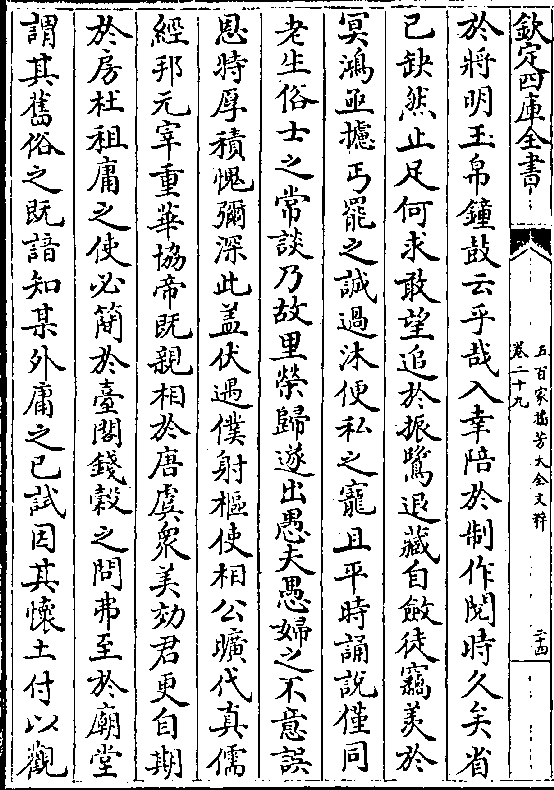 欽定四庫全書
五百家播芳大全文粹
卷二十九
二十四
於將明玉帛鐘鼓云乎哉入幸陪於制作閱時久矣省
已缺然止足何求敢望追於振鷺退藏自斂徒竊羡於
冥鴻亟攄丐罷之誠過沐便私之寵且平時誦說僅同
老生俗士之常談乃故里榮歸遂出愚夫愚婦之不意誤
恩時厚積愧彌深此盖伏遇僕射樞使相公曠代真儒
經邦元宰重華協帝既親相於唐虞衆美効君更自期
於房杜祖庸之使必簡於臺閣錢穀之問弗至於廟堂
謂其舊俗之既諳知某外庸之已試因其懷土付以觀